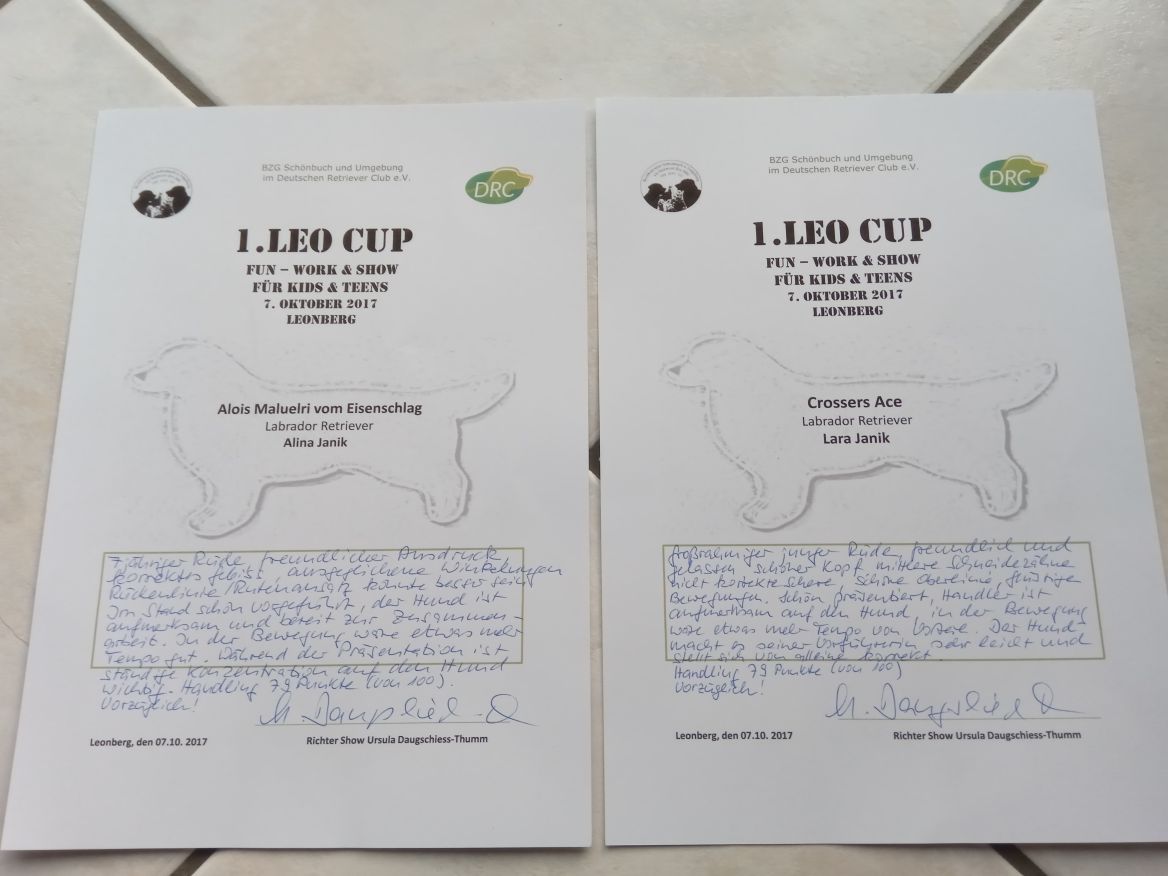 BZG Schönbuch und Umgebung
im Deutschen Retriever Club e.V.
DRC
1.LEO CUP
FUN – WORK & SHOW
FÜR KIDS & TEENS
7. OKTOBER 2017
LEONBERG
Alois Maluelri vom Eisenschlag
Labrador Retriever
Alina Janik
7jähriger Rüde, freundlicher Ausdruck,
korrektes Gebiss, ausgeglichene Winkelungen
Rückenlinie/Rutenansatz könnte besser sein.
Im Stand schön vorgeführt, der Hund ist
aufmerksam und bereit zur Zusammen-
arbeit. In der Bewegung wäre etwas mehr
Tempo gut. Während der Präsentation ist
ständige Konzentration auf den Hund
wichtig. Handling 79 Punkte (von 100).
Vorzüglich!
Leonberg, den 07.10. 2017
Richter Show Ursula Daugschiess-Thumm
BZG Schönbuch und Umgebung
im Deutschen Retriever Club e.V.
DRC
1.LEO CUP
FUN – WORK & SHOW
FÜR KIDS & TEENS
7. OKTOBER 2017
LEONBERG
Crossers Ace
Labrador Retriever
Lara Janik
Großrahmiger junger Rüde, freundlich und
gelassen schöner Kopf mittlere Schneidezähne
nicht korrekte Schere, schöne Oberlinie, flüssige
Bewegungen. Schön präsentiert, Handler ist
aufmerksam auf den Hund, in der Bewegung
wäre etwas mehr Tempo von Vorteil. Der Hund
macht es seiner Vorführerin sehr leicht und
stellt sich von alleine korrekt.
Handling 79 Punkte (von 100)
Vorzüglich!
Leonberg, den 07.10. 2017
Richter Show Ursula Daugschiess-Thumm